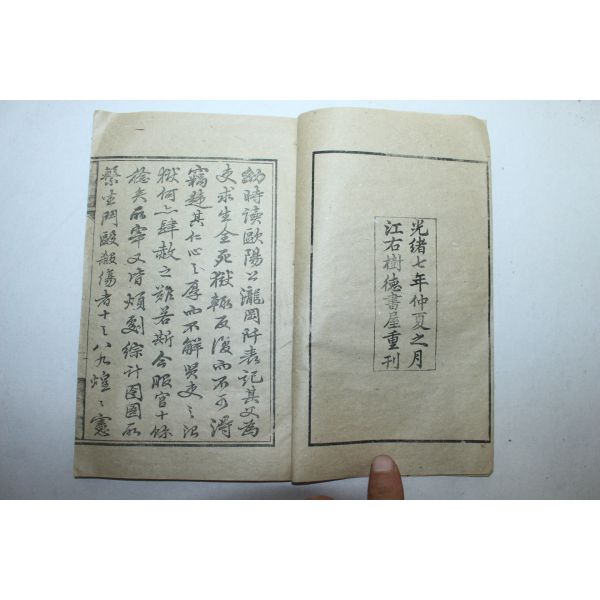 光緒七年仲夏之月
江右樹德書屋重刊
幼時读歐陽公瀧岡阡表記其父為
吏求生全死獄輒反復而不可得
竊疑其仁心之厚而不解吏之治
獄何以肆赦之難若斯今服官十餘
稔矣所宰又皆煩劇綜計囹圄所
繫坐鬥毆殺傷者十之八九煌々憲